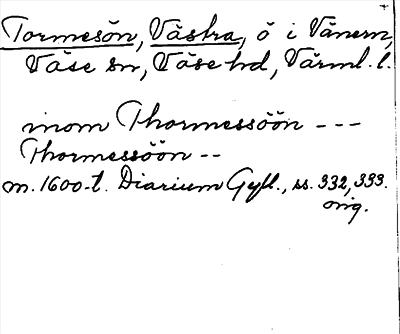 Tormesön, Västra, ö i Vänern,
Väse sn, Väse hd, Värml. l.
inom Thormessöön ---
Thormessöön --
m. 1600-t. Diarium Gyll., ss. 332, 333.
orig.